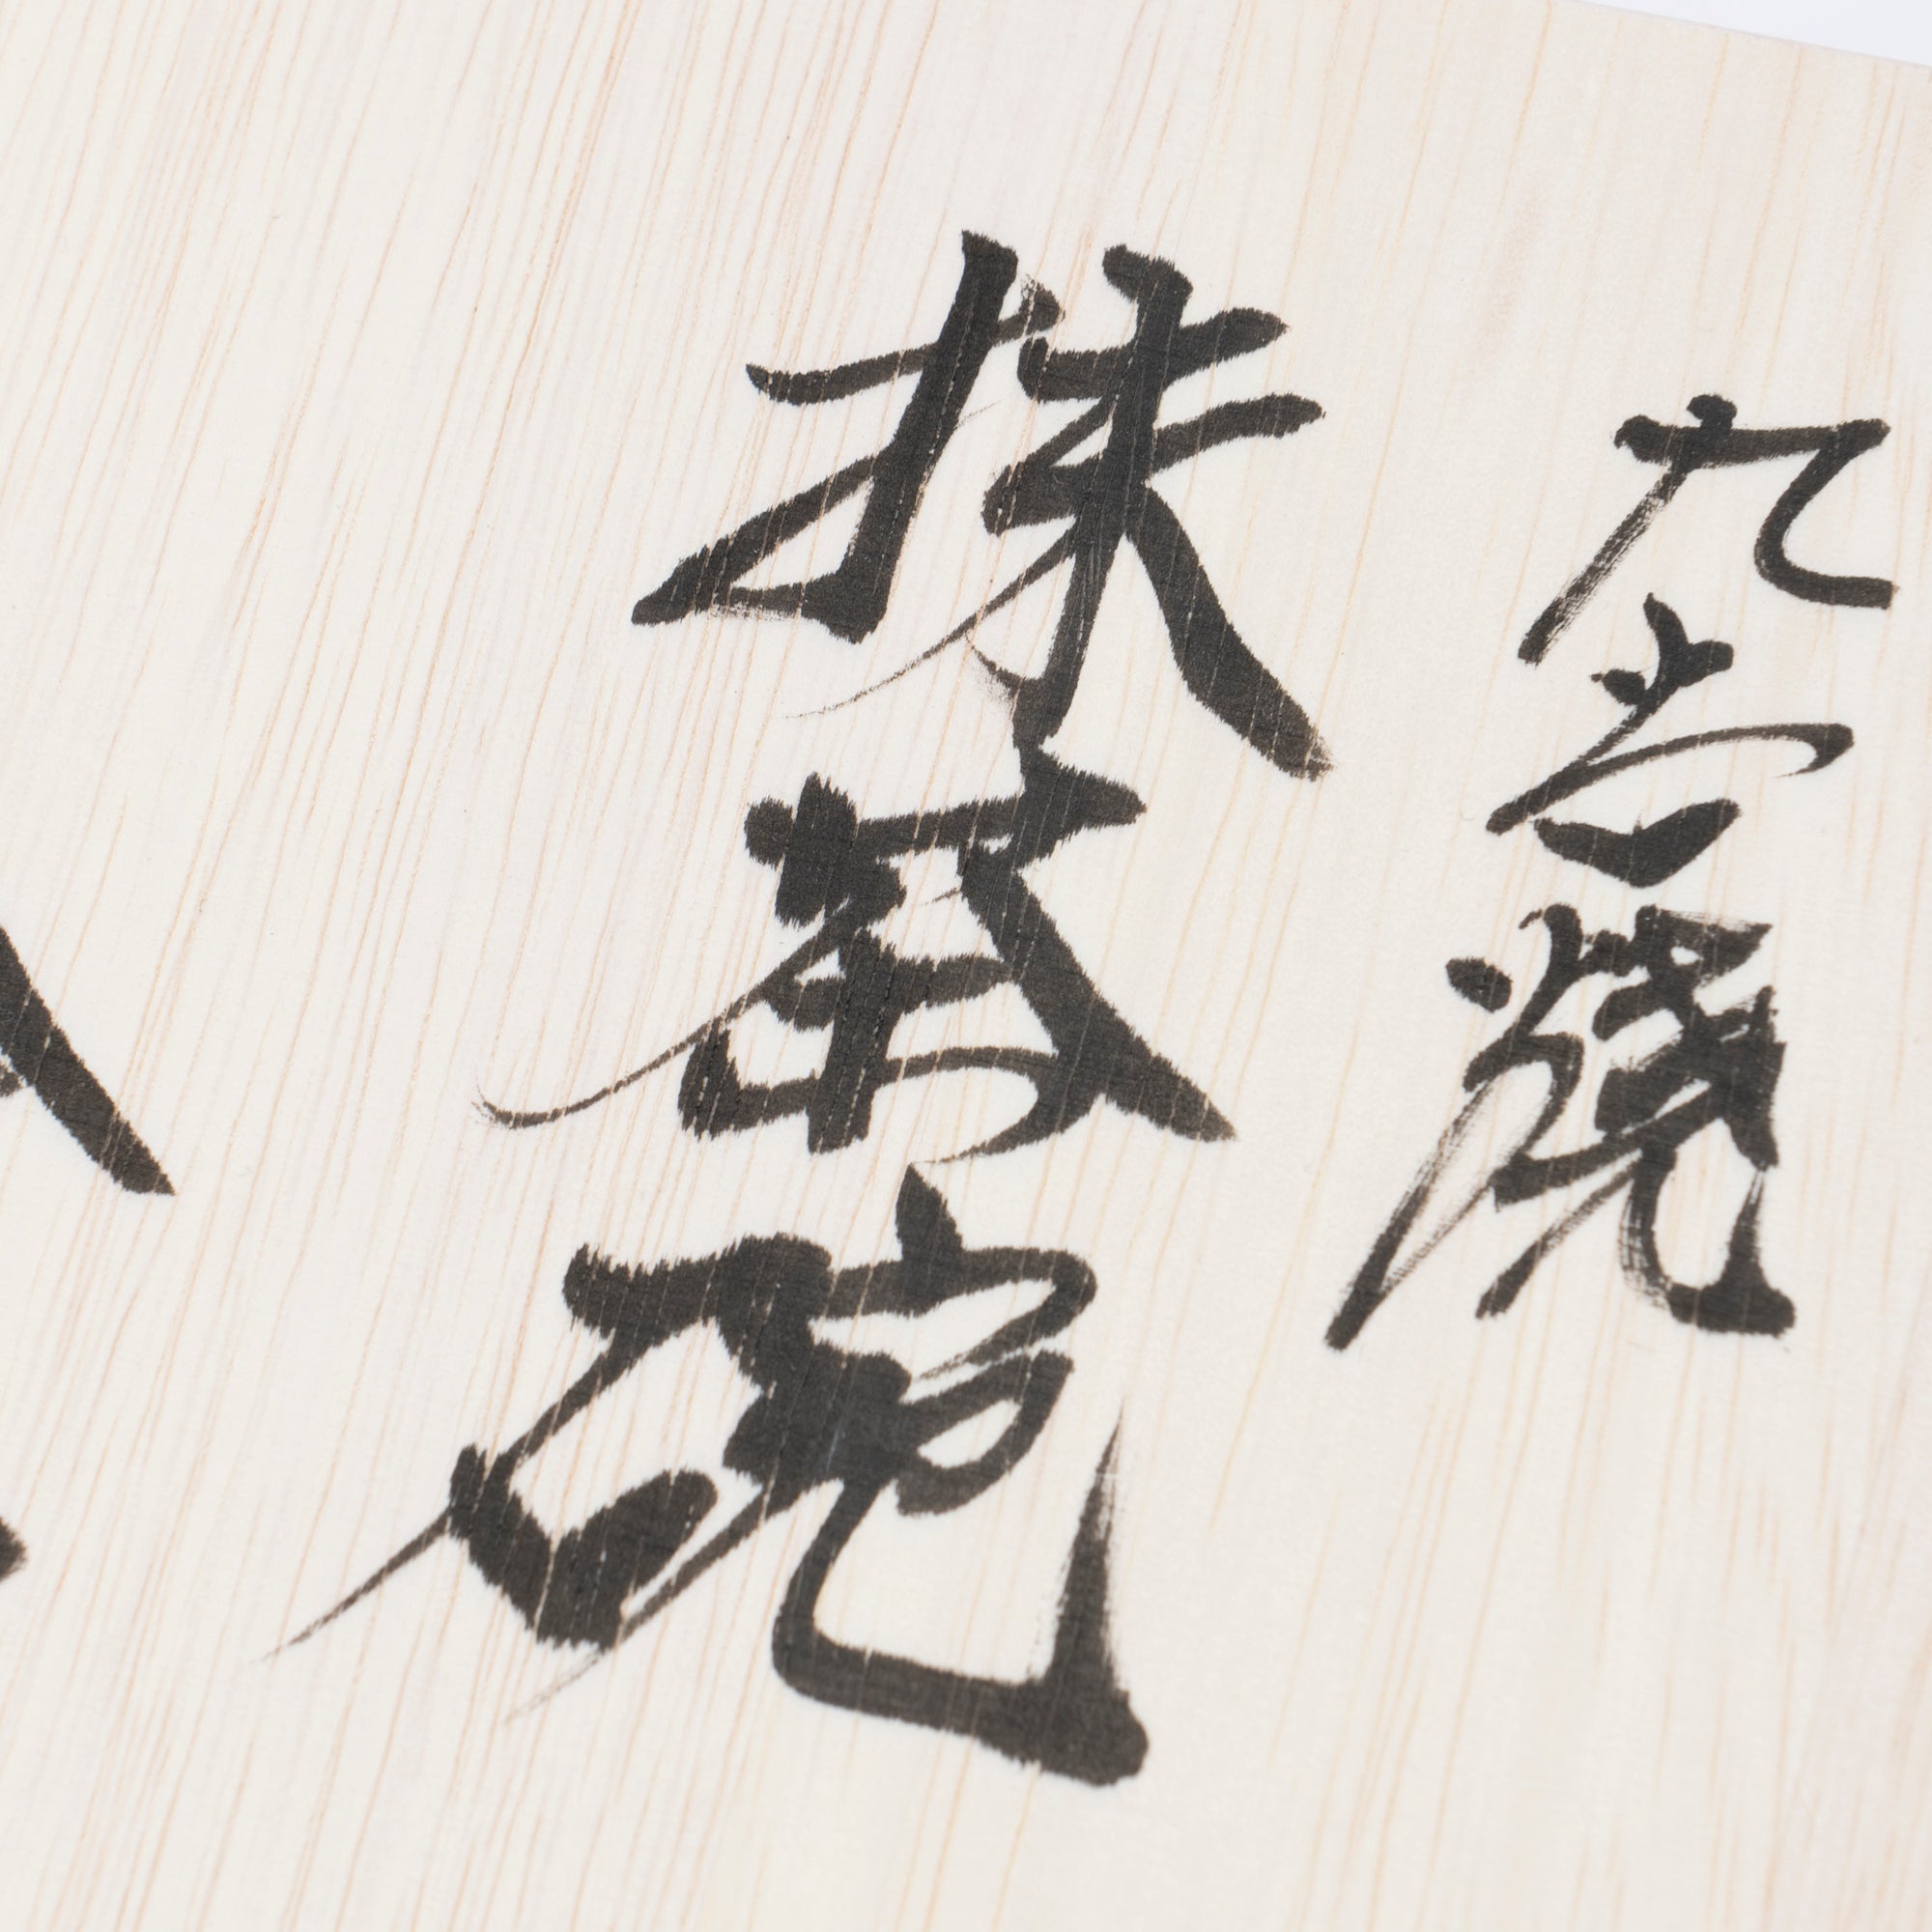 九谷燒
抹茶碗